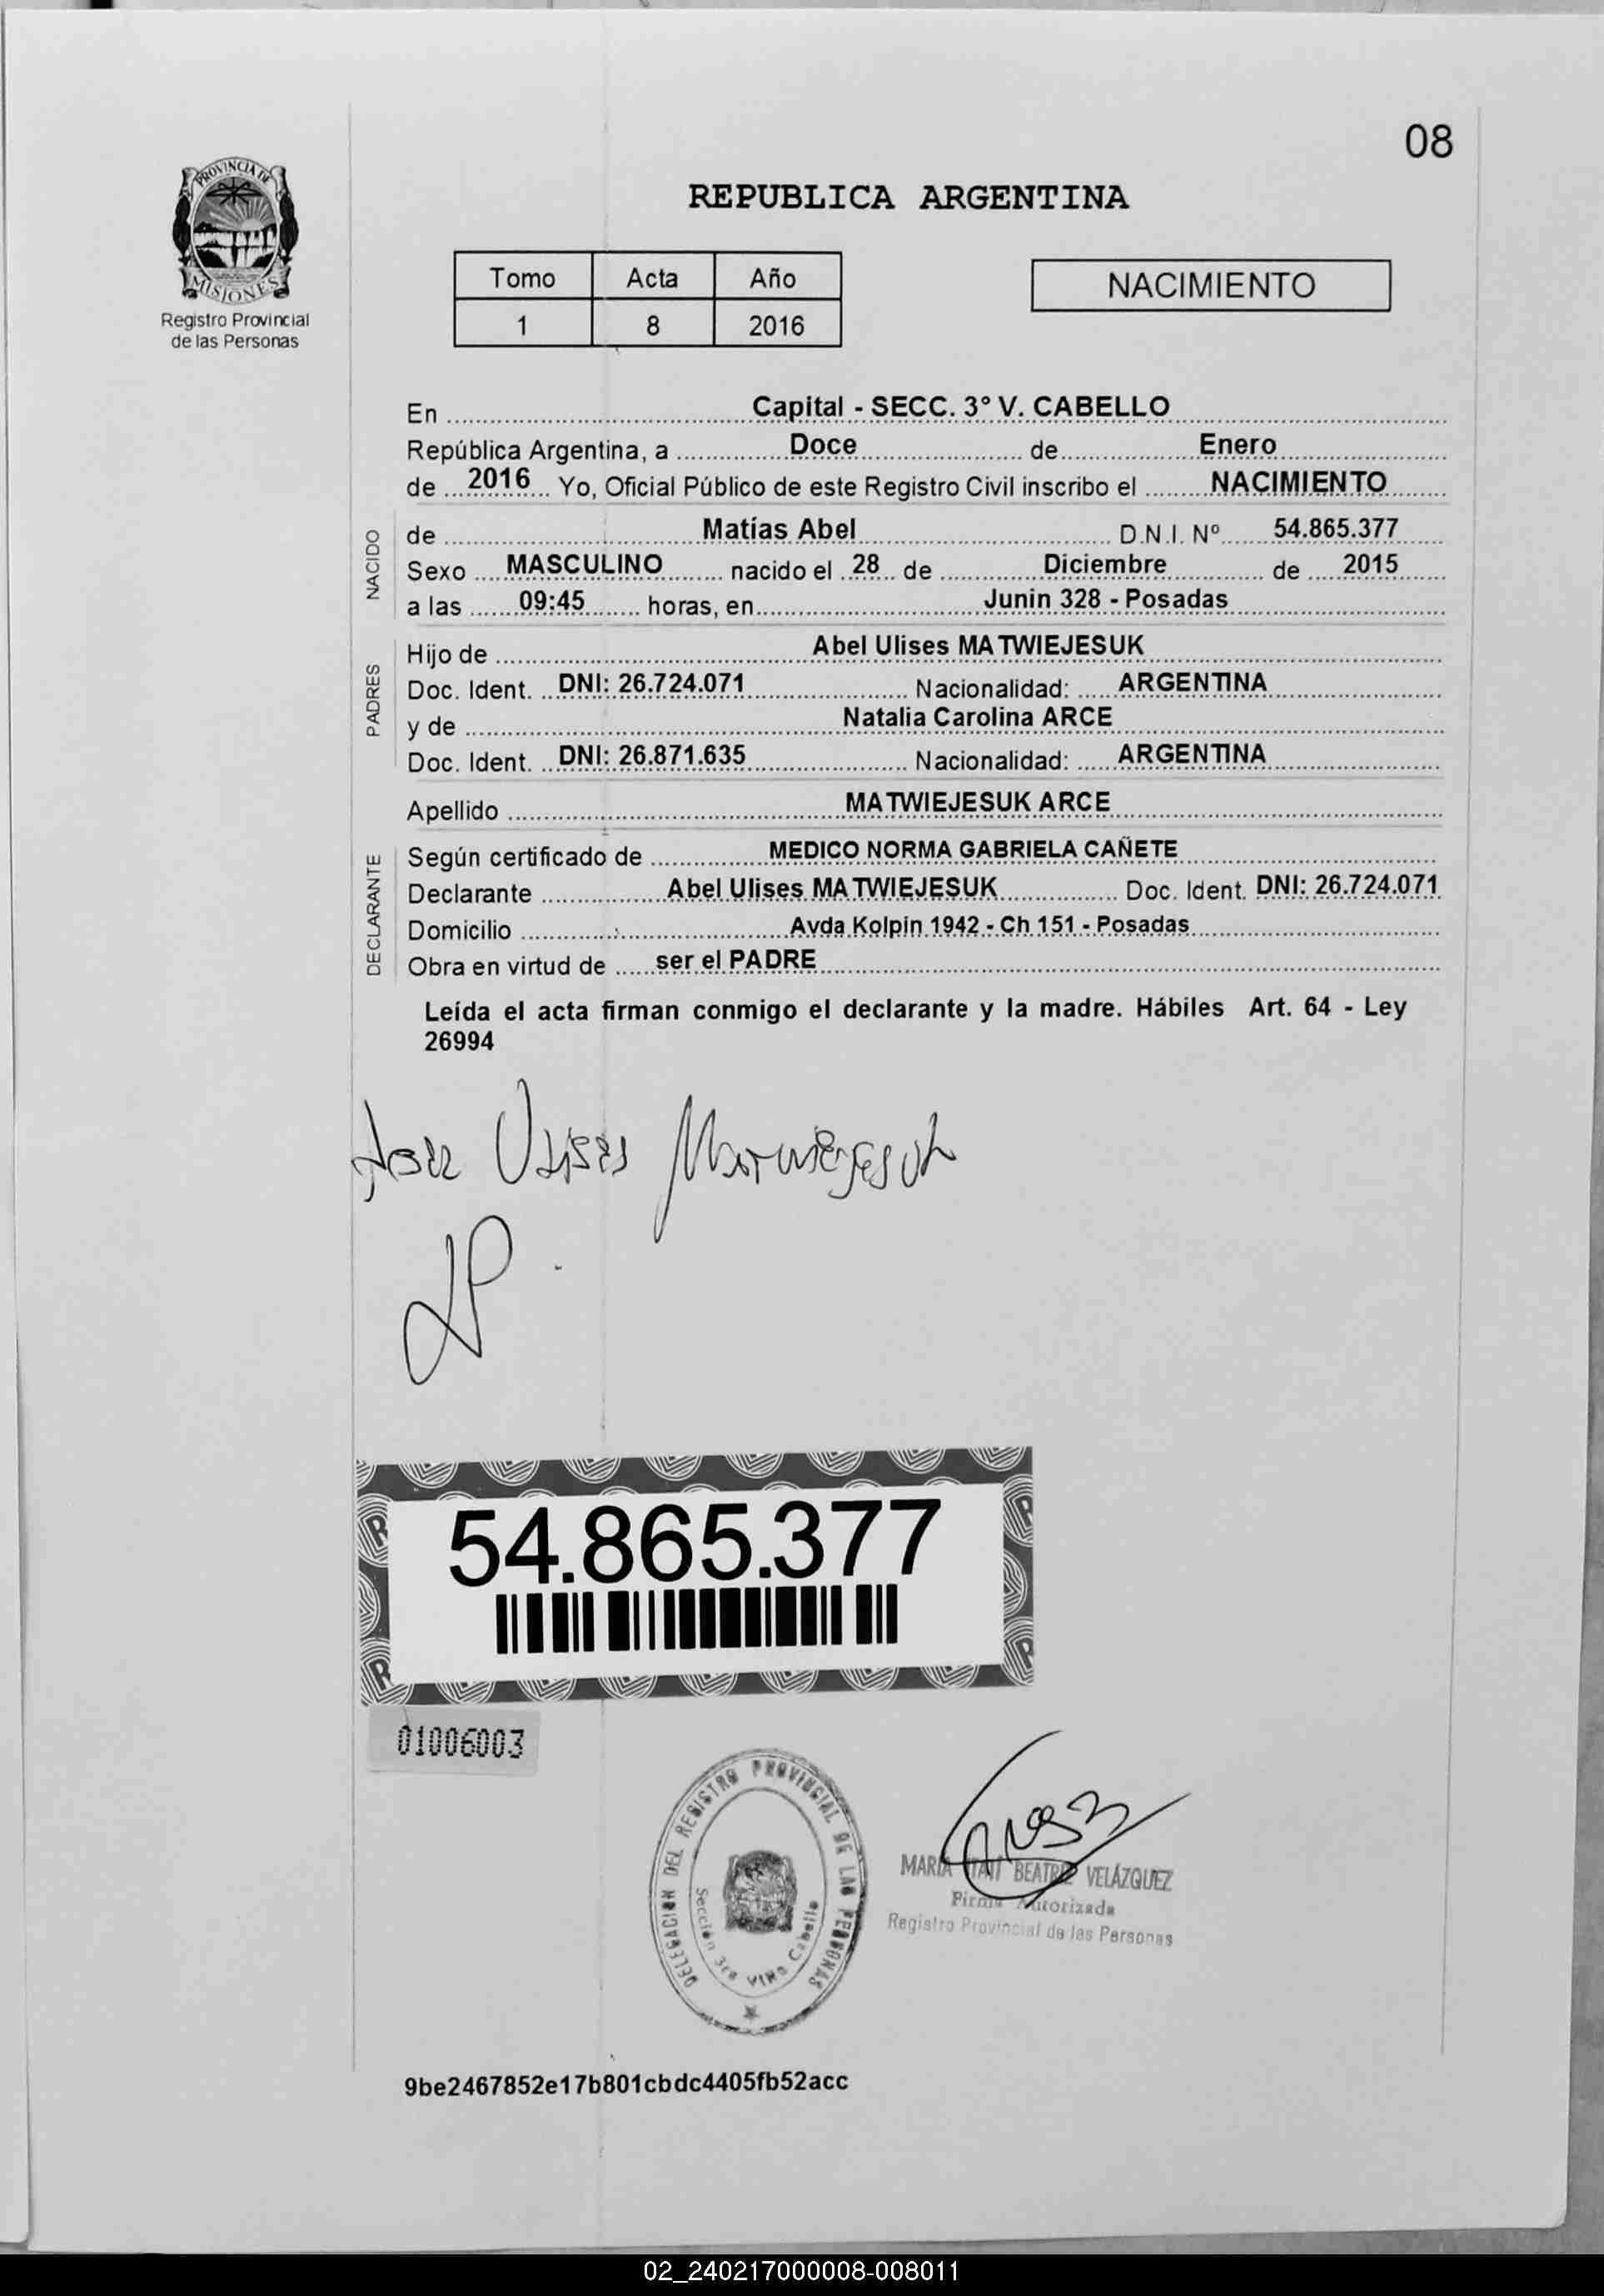 08
PROVINCIA DE
MISIONES
Registro Provincial
de las Personas
REPUBLICA ARGENTINA
Tomo Acta Año
1 8 2016
NACIMIENTO
En Capital - SECC. 3° V. CABELLO
República Argentina, a Doce de Enero
de 2016 Yo, Oficial Público de este Registro Civil inscribo el NACIMIENTO
NACIDO
de Matías Abel D.N.I. Nº 54.865.377
Sexo MASCULINO nacido el 28 de Diciembre de 2015
a las 09:45 horas, en Junin 328 - Posadas
PADRES
Hijo de Abel Ulises MATWIEJESUK
Doc. Ident. DNI: 26.724.071 Nacionalidad: ARGENTINA
y de Natalia Carolina ARCE
Doc. Ident. DNI: 26.871.635 Nacionalidad: ARGENTINA
Apellido MATWIEJESUK ARCE
DECLARANTE
Según certificado de MEDICO NORMA GABRIELA CAÑETE
Declarante Abel Ulises MATWIEJESUK Doc. Ident. DNI: 26.724.071
Domicilio Avda Kolpin 1942 - Ch 151 - Posadas
Obra en virtud de ser el PADRE
Leída el acta firman conmigo el declarante y la madre. Hábiles Art. 64 - Ley
26994
Abel Ulises Matwiejesuk
54.865.377
01006003
DELEGACION DEL REGISTRO PROVINCIAL DE LAS PERSONAS
Sección 3ra Villa Cabello
MARIA ITATI BEATRIZ VELÁZQUEZ
Firma Autorizada
Registro Provincial de las Personas
9be2467852e17b801cbdc4405fb52acc
02_240217000008-008011